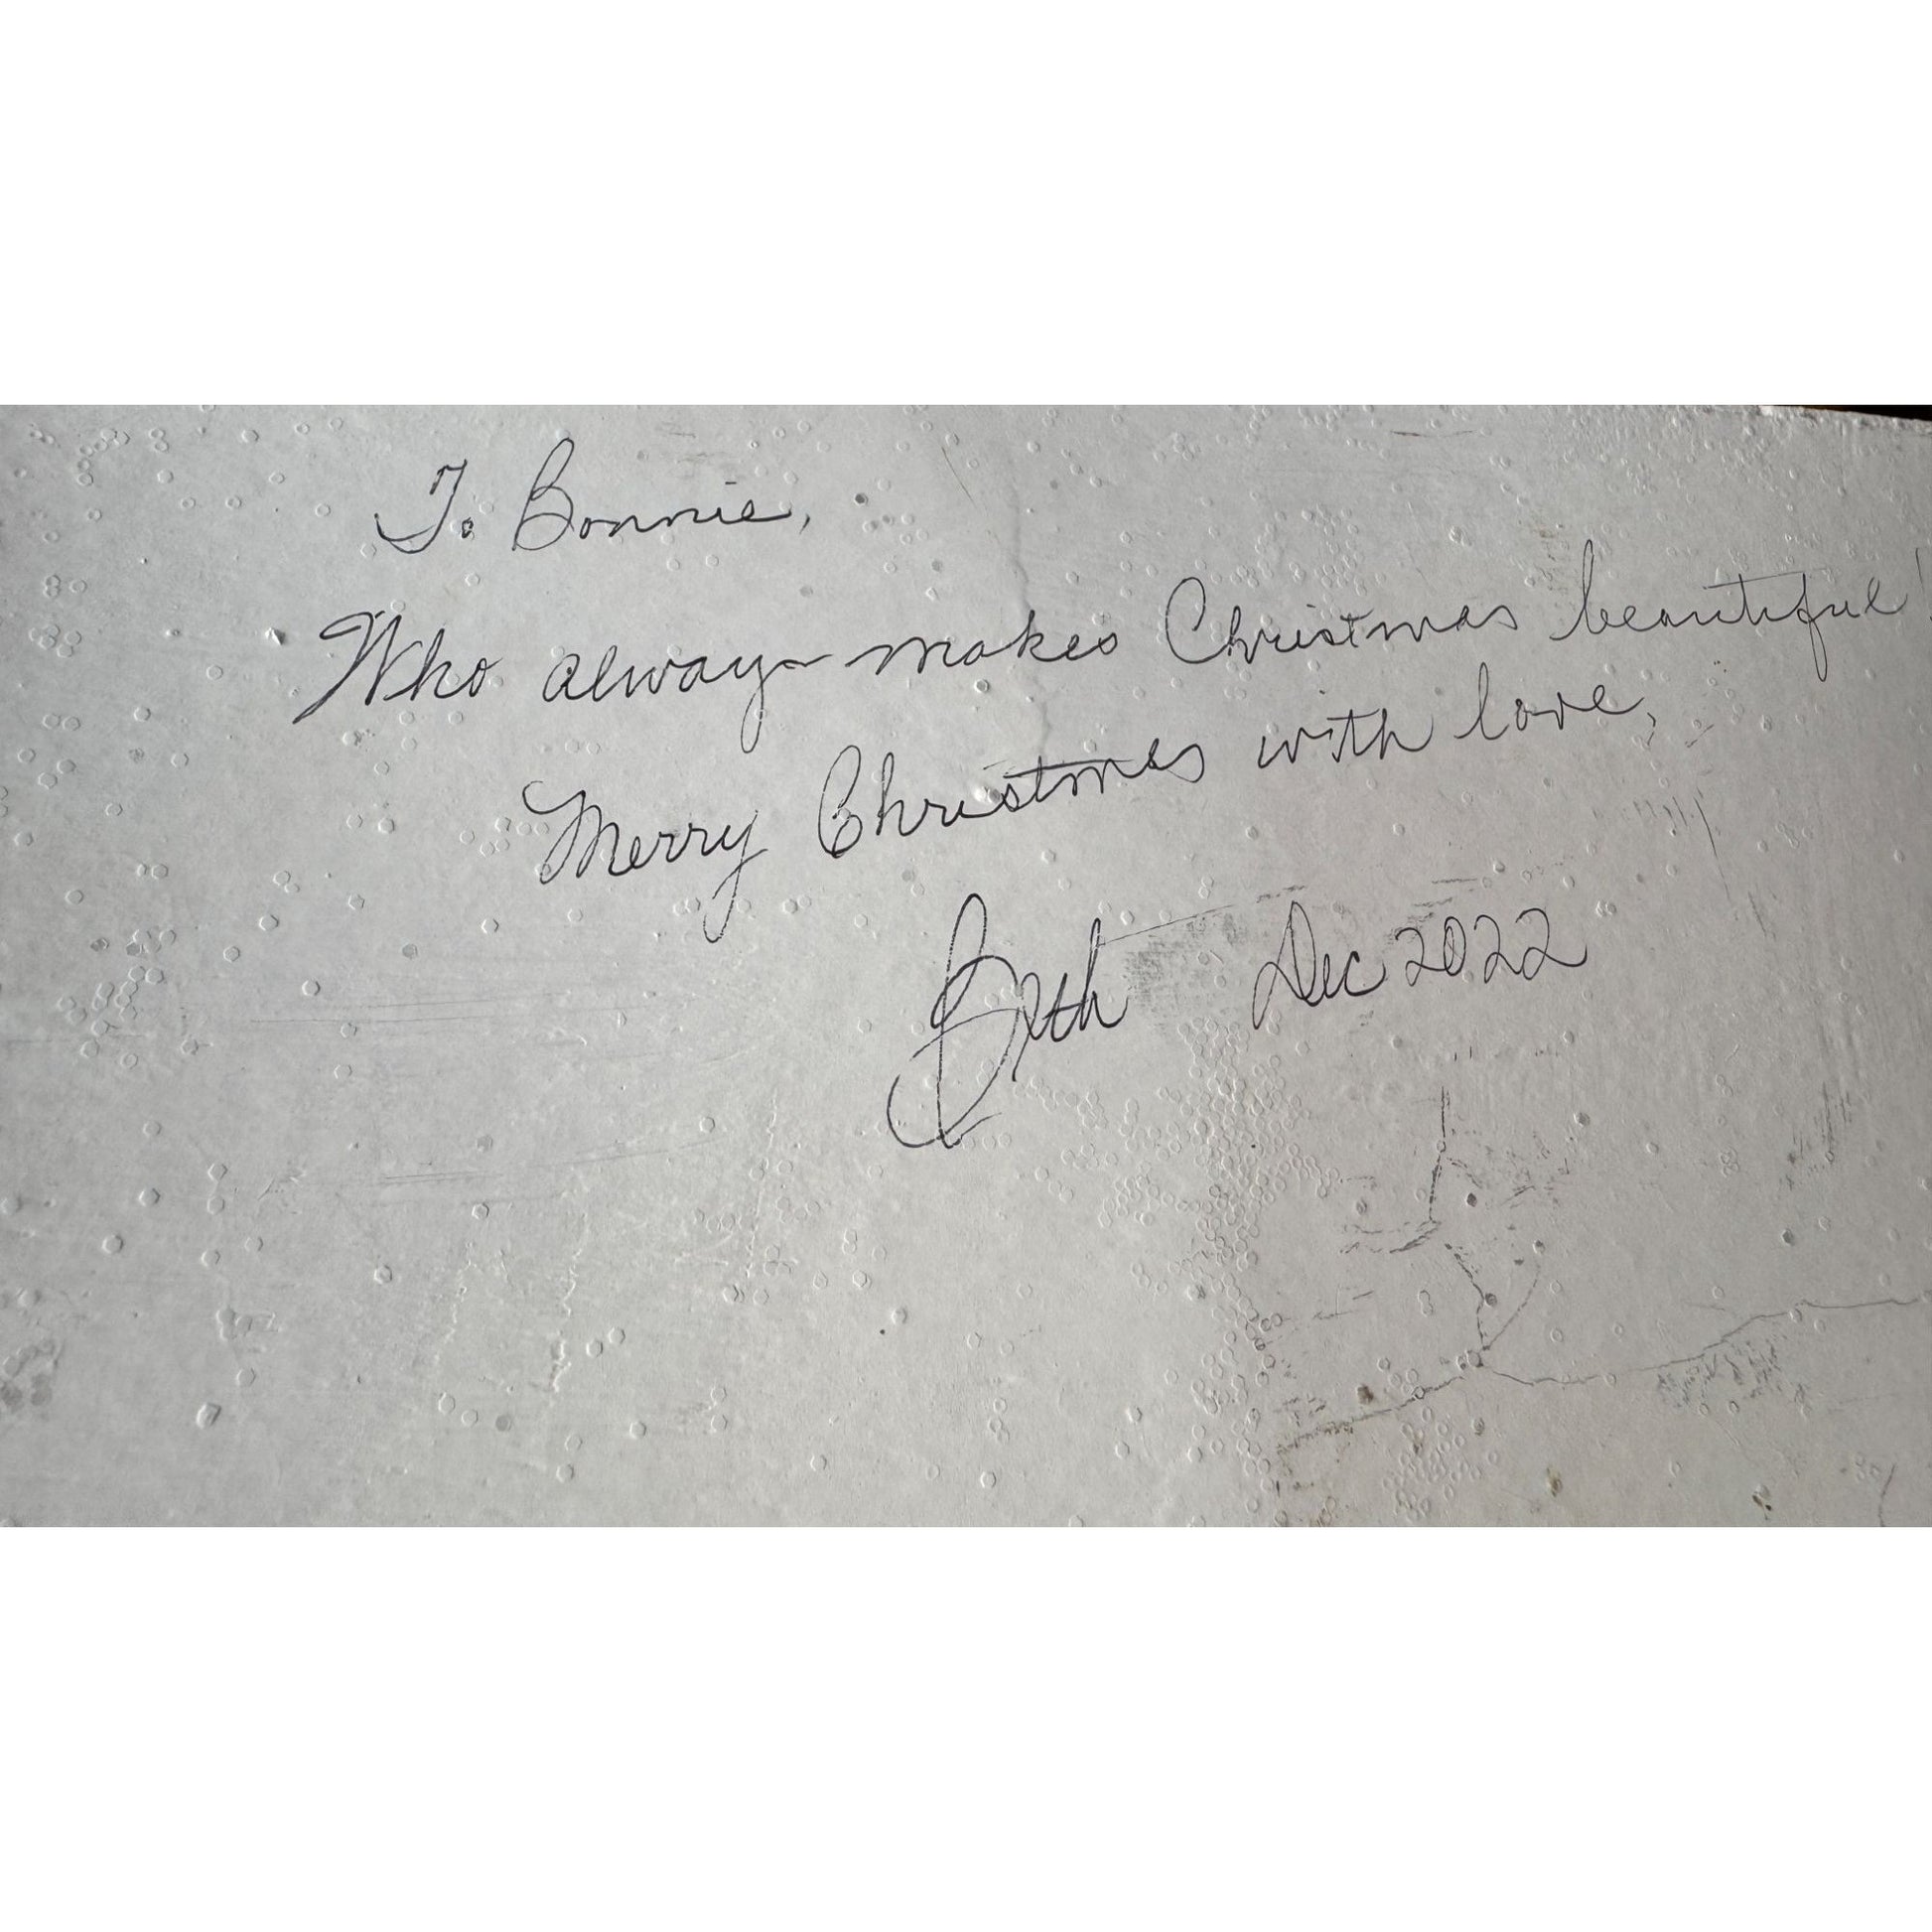 To Bonnie,
Who always makes Christmas beautiful!
Merry Christmas with love,
Beth Dec 2022